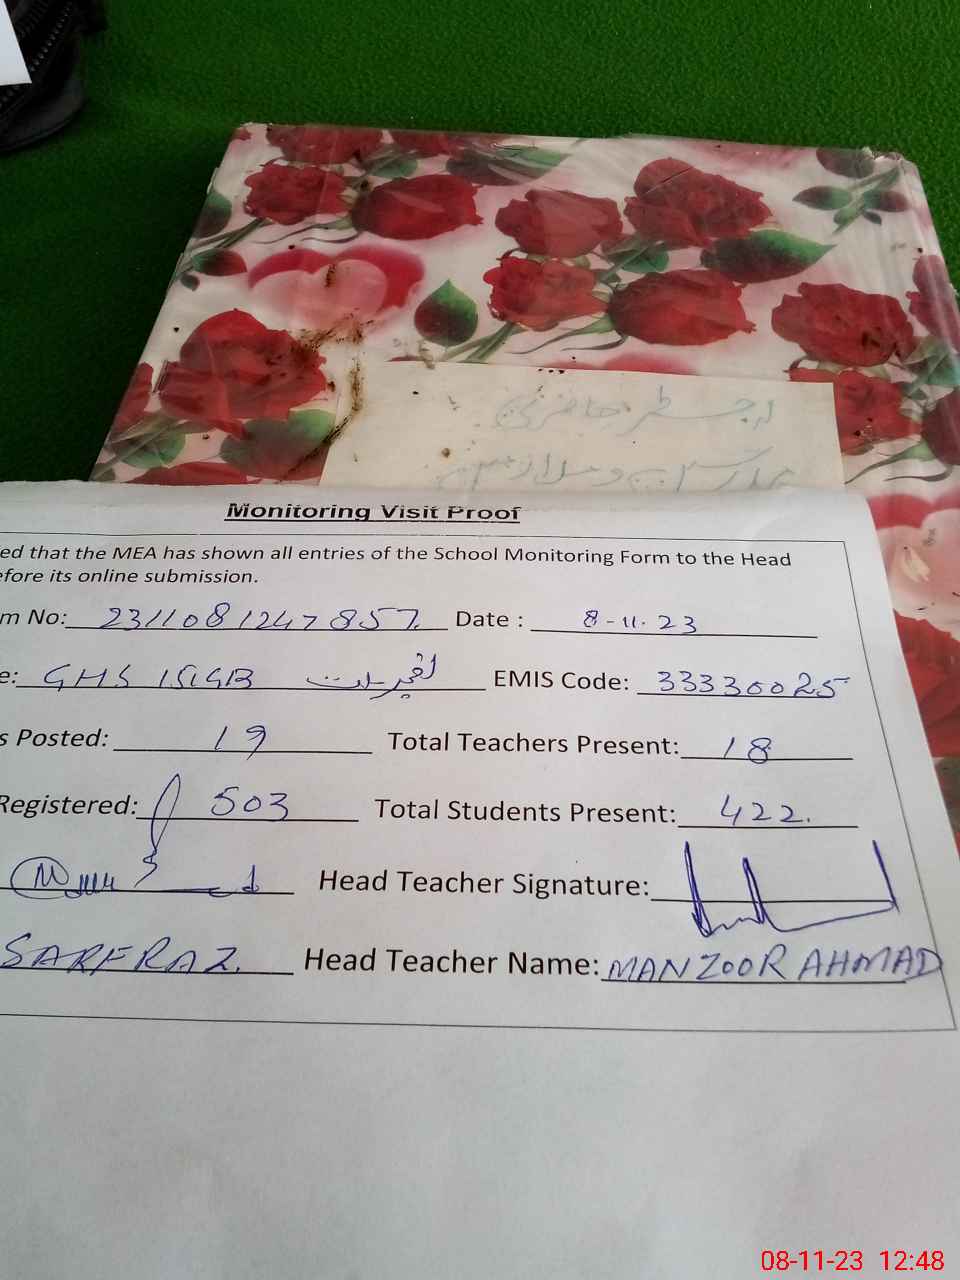 رجسٹر حاضری
Monitoring Visit Proof
ed that the MEA has shown all entries of the School Monitoring Form to the Head
efore its online submission.
m No: 2311081247857. Date : 8-11-23
e: GHS 151GB EMIS Code: 33330025
s Posted: 19 Total Teachers Present: 18
Registered: 503 Total Students Present: 422.
Head Teacher Signature:
SARFRAZ. Head Teacher Name: MANZOOR AHMAD
08-11-23 12:48